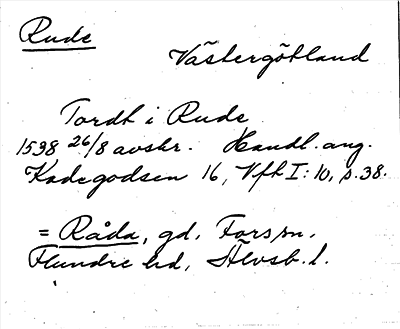 Rude
Västergötland
Tordh i Rude
1538 26/8 avskr. Handl. ang.
Kadegodsen 16, Vfh I:10, s. 38.
= Råda, gd, Fors sn,
Flundre hd, Älvsb. l.